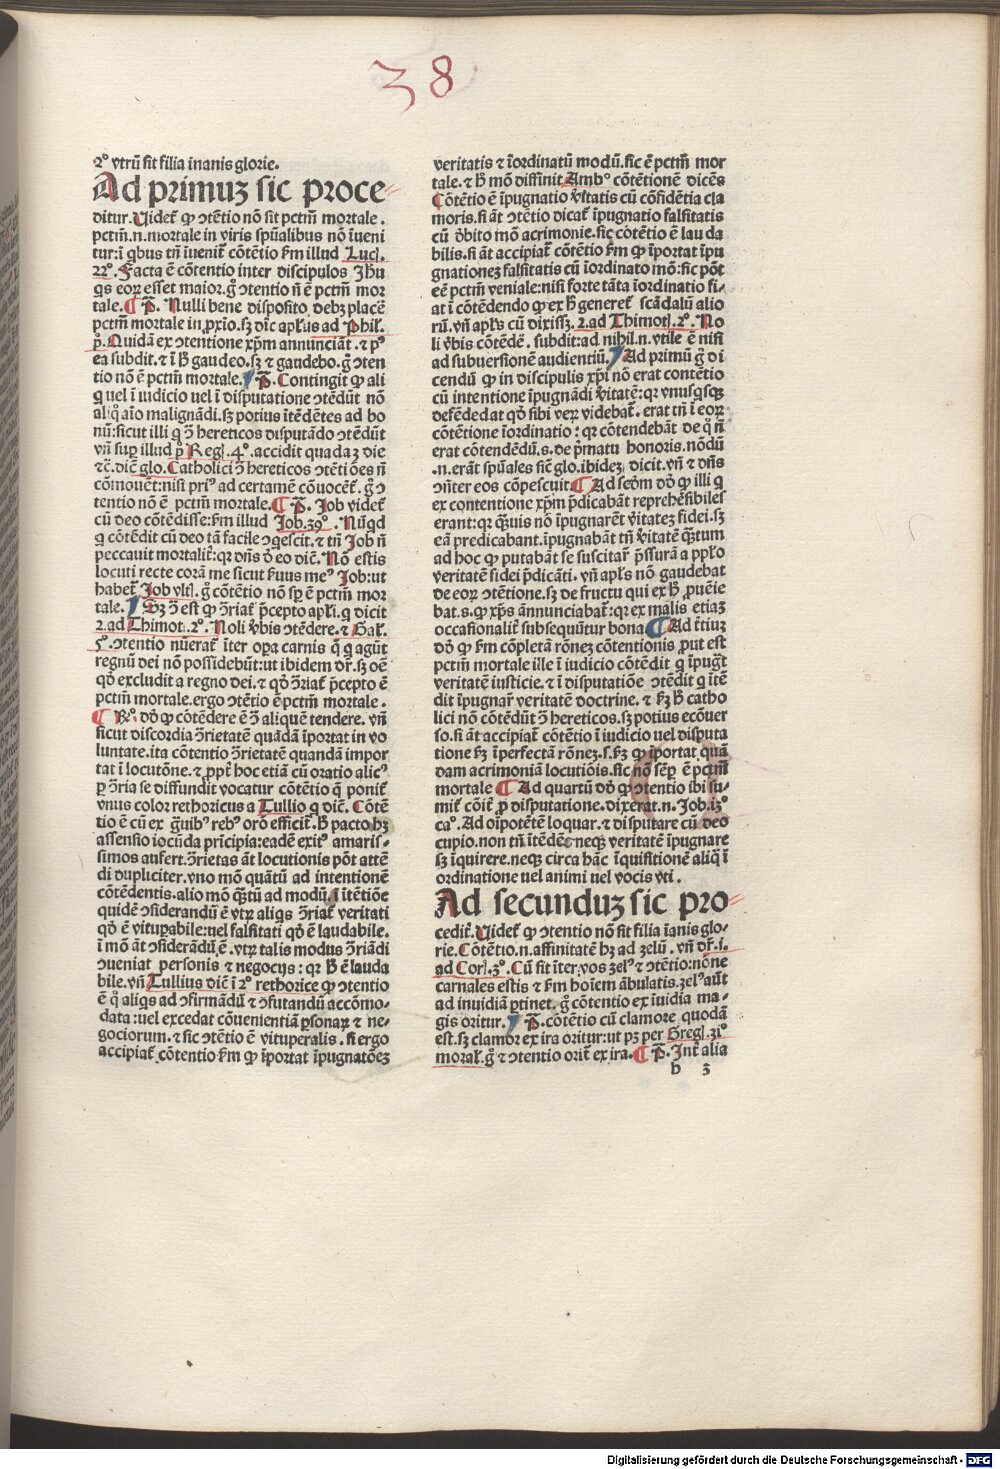 38
2º vtrū sit filia inanis glorie.
Ad primuꝫ sic proce⸗
ditur. Videt̄ ꝙ ↄtētio nō sit pctm̄ mortale.
pctm̄.n.mortale in viris spūalibus nō iueni
tur:ī qbus tn̄ īuenit̄ cōtētio ẜm illud Luc.
22º. Facta ē cōtentio inter discipulos Jhū
qs eoꝝ esset maior.gͦ ↄtentio nō ē pctm̄ mor
tale. ¶ P̄. Nulli bene disposito debꝫ placē
pctm̄ mortale in ꝓxīo.sꝫ dīc apl̄us ad Phil.
p̄. Quidā ex ↄtentione xp̄m annunciāt.⁊ pꝰ
ea subdit.⁊ ī ħ gaudeo.sꝫ ⁊ gaudebo.gͦ ↄten
tio nō ē pctm̄ mortale. ¶ P̄. Contingit ꝙ ali
q uel ī iudicio uel ī disputatione ↄtēdūt nō
aliqͦ aīo malignādi.sꝫ potius ītēdētes ad bo
nū:sicut illi q ↄ̄ hereticos disputādo ↄtēdūt
vn̄ suꝑ illud p̄ Reg. 4º.accidit quadaꝫ die
⁊c̄.dic̄ glo. Catholici ↄ̄ hereticos ↄtēti ōes n̄
cōmouēt:nisi priꝰ ad certamē cōuocēt̄.gͦ ↄ̄
tentio nō ē pctm̄ mortale. ¶ P̄. Job videt̄
cū deo cōtēdisse:ẜm illud Job.39º. Nūqd
q cōtēdit cū deo tā facile ↄqescit.⁊ tn̄ Job n̄
peccauit mortalit̄:qꝛ dn̄s ð eo dic̄. Nō estis
locuti recte corā me sicut ẜuus meꝰ Job:ut
habet̄ Job vlt̄.gͦ cōtētio nō sꝑ ē pctm̄ mor
tale. ¶ Sꝫ ↄ̄ est ꝙ ↄ̄riat̄ p̄cepto apl̄i.q dicit
2.ad Thimot.2º. Noli v̄bis ↄtēdere.⁊ Gal̄.
5º.ↄtentio nūerat̄ īter opa carnis q̄ q agūt
regnū dei nō possidebūt:ut ibidem dr̄.sꝫ oē
qð excludit a regno dei.⁊ qð ↄ̄riat̄ p̄cepto ē
pctm̄ mortale.ergo ↄtētio ē pctm̄ mortale.
¶ Rº. ðð ꝙ cōtēdere ē ↄ̄ aliquē tendere. vn̄
sicut discordia ↄ̄rietatē quādā īportat in vo
luntate.ita cōtentio ↄ̄rietatē quandā impor
tat ī locutōne.⁊ ꝓpt̄ hoc etiā cū oratio alicꝰ
ꝑ ↄ̄ria se diffundit vocatur cōtētio q̄ ponit̄
vnus color rethoricus a Tullio q dic̄. Cōtē
tio ē cū ex ↄ̄riibꝰ rebꝰ orō efficit̄.ħ pacto:hꝫ
assensio iocūda prīcipia:eadē exitꝰ amaris⸗
simos aufert.ↄ̄rietas āt locutionis pōt attē
di dupliciter.vno mō quātū ad intentionē
cōtēdentis.alio mō q̄tū ad modū.ī ītētiōe
quidē ↄsiderandū ē vtꝝ aliqs ↄ̄riat̄ veritati
qð ē vituꝑabile:uel falsitati qð ē laudabile.
ī mō āt ↄsiderādū ē.vtꝝ talis modus ↄ̄riādi
ↄueniat personis ⁊ negocijs:qꝛ ħ ē lauda
bile.vn̄ Tullius dic̄ ī 2º rethorice ꝙ ↄtentio
ē q̄ aliqs ad ↄfirmādū ⁊ ↄfutandū accōmo⸗
data:uel excedat cōuenientiā ꝑsonaꝝ ⁊ ne⸗
gociorum.⁊ sic ↄtētio ē vituperalis. si ergo
accipiat̄ cōtentio ẜm ꝙ īportat īpugnatōeꝫ
veritatis ⁊ īordinatū modū.sic ē pctm̄ mor
tale.⁊ ħ mō diffinit Ambº cōtētionē dicēs
Cōtētio ē īpugnatio v̄itatis cū cōfidētia cla
moris.si āt ↄtētio dicat̄ īpugnatio falsitatis
cū ðbito mō acrimonie.sic cōtētio ē lauda
bilis.si āt accipiat̄ cōtētio ẜm ꝙ īportat īpu
gnationeꝫ falsitatis cū īordinato mō:sic pōt
eē pctm̄ veniale:nisi forte tāta īordinatio fi⸗
at ī cōtēdendo ꝙ ex ħ generet̄ scādalū alio
rū.vn̄ apl̄s cū dixissꝫ.2.ad Thimot.2º. No
li v̄bis cōtēdē. subdit:ad nihil.n.vtile ē nisi
ad subuersionē audientiū. ¶ Ad primū gͦ di
cendū ꝙ in discipulis xp̄i nō erat contētio
cū intentione īpugnādi v̄itatē:qꝛ vnusqsqꝫ
defēdedat qð sibi veꝝ videbat̄. erat tn̄ ī eoꝝ
cōtētione īordinatio:qꝛ cōtendebāt de qͦ n̄
erat cōtendēdū.s.de p̄matu honoris.nōdū
.n.erāt spūales sic̄ glo.ibideꝫ dicit.vn̄ ⁊ dn̄s
ↄn̄ter eos cōpescuit. ¶ Ad scðm ðð ꝙ illi q
ex contentione xp̄m p̄dicabāt reprehēsibiles
erant:qꝛ q̄uis nō īpugnarēt v̄itateꝫ fidei.sꝫ
eā predicabant.īpugnabāt tn̄ v̄itatē q̄tum
ad hoc ꝙ putabāt se suscitar̄ p̄ssurā a pp̄lo
veritatē fidei p̄dicāti. vn̄ apl̄s nō gaudebat
de eoꝝ ↄtētione.sꝫ de fructu qui ex ħ ꝓueīe
bat.s.ꝙ xp̄s ānunciabat̄:qꝛ ex malis etiaꝫ
occasionalit̄ subsequūtur bona ¶ Ad t̄tiuꝫ
ðð ꝙ ẜm cōpletā rōneꝫ cōtentionis prout est
pctm̄ mortale ille ī iudicio cōtēdit q īpugt̄
veritatē iusticie.⁊ ī disputatiōe ↄtēdit q ītē
dit īpugnar̄ veritatē doctrine.⁊ ẜꝫ ħ catho
lici nō cōtēdūt ↄ̄ hereticos.sꝫ potius ecōuer
so.si āt accipiat̄ cōtētio ī iudicio uel disputa
tione ẜꝫ īperfectā rōneꝫ.s.ẜꝫ ꝙ īportat quā
dam acrimoniā locutiōis.sic nō sēꝑ ē pctm̄
mortale ¶ Ad quartū ðð ꝙ ↄtentio ibi su⸗
mit̄ cōit̄ ꝓ disputatione.dixerat.n.Job.13º
caº. Ad oīpotētē loquar.⁊ disputare cū deo
cupio.non tn̄ ītēdēs neqꝫ veritatē īpugnare
sꝫ īquirere.neqꝫ circa hāc īquisitionē aliq̄ ī
ordinatione uel animi uel vocis vti.
Ad secunduꝫ sic pro⸗
cedit̄. Videt̄ ꝙ ↄtentio nō sit filia īanis glo⸗
rie. Cōtētio.n.affinitatē hꝫ ad zelū. vn̄ dr̄.1.
ad Cor.3º. Cū sit īter vos zelꝰ ⁊ ↄtētio:nōne
carnales estis ⁊ ẜm hoīem ābulatis.zelꝰ aūt
ad inuidiā ꝑtinet.gͦ cōtentio ex īuidia ma⸗
gis oritur. ¶ P̄. cōtētio cū clamore quodā
est.sꝫ clamor ex ira oritur:ut pꝫ per Greg.31º
moral̄.gͦ ⁊ ↄtentio orit̄ ex ira. ¶ P̄. Int̄ alia
b 3
Digitalisierung gefördert durch die Deutsche Forschungsgemeinschaft - DFG